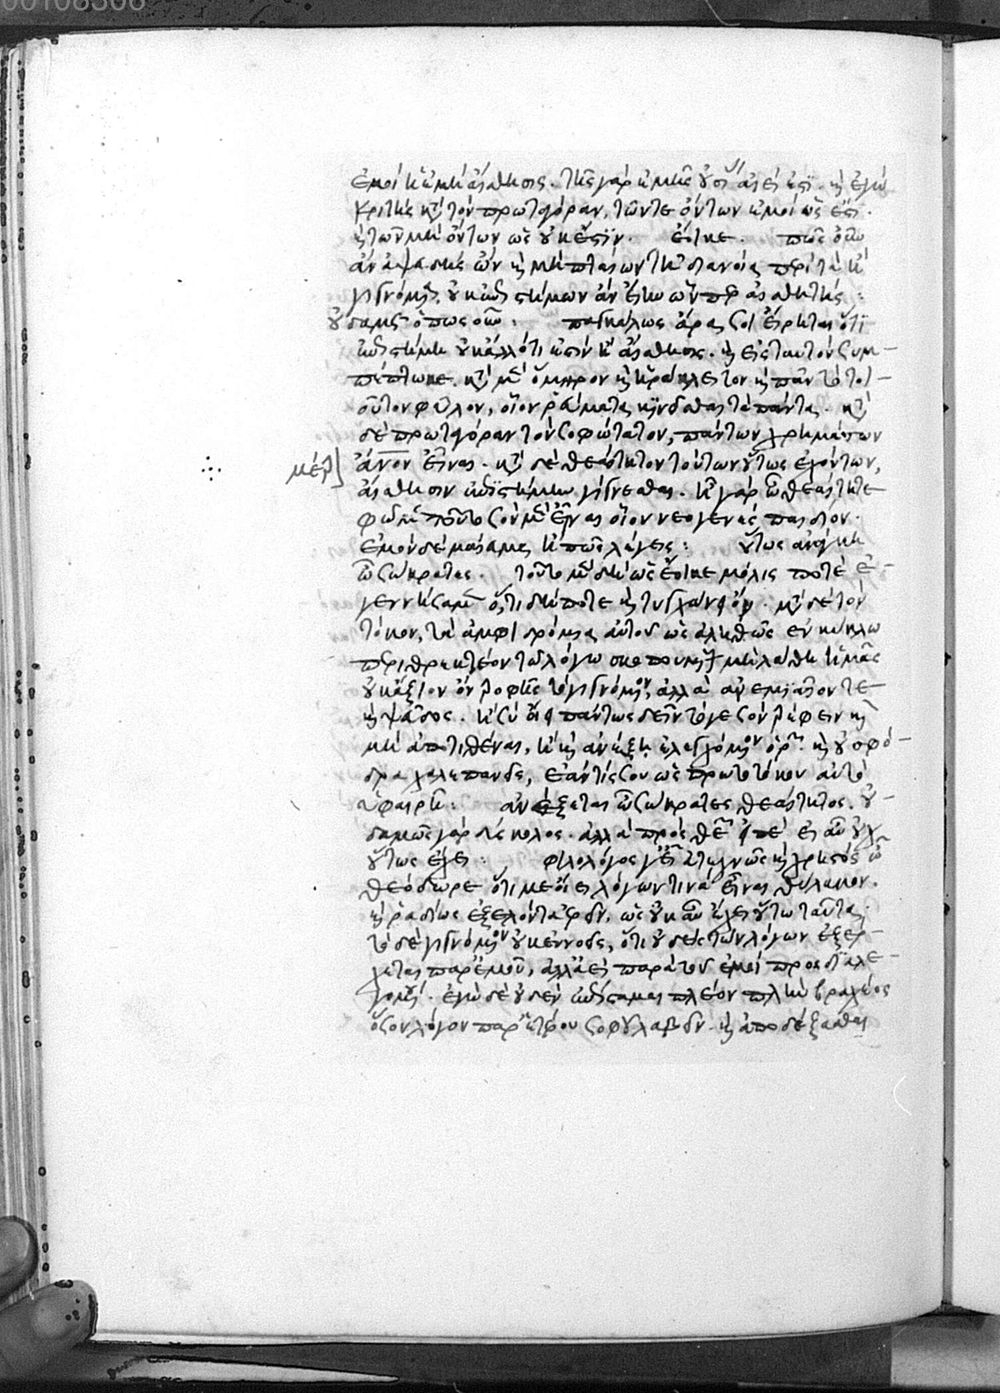 ἐμοὶ ἡ ἐμὴ αἴσθησις. τῆς γὰρ ἐμῆς οὐσίας ἀεί ἐστι. καὶ ἐγὼ
κριτὴς κατὰ τὸν πρωταγόραν, τῶν τε ὄντων ἐμοὶ ὡς ἔστι.
καὶ τῶν μὴ ὄντων ὡς οὐκ ἔστιν. ἔοικε. πῶς οὖν
ἂν ἀψευδὴς ὢν καὶ μὴ πταίων τῇ διανοίᾳ περὶ τὰ ἢ
γιγνόμενα, οὐκ ἐπιστήμων ἂν εἴην ὧνπερ αἰσθητής;
οὐδαμῶς ὅπως οὔ: παγκάλως ἄρα σοι εἴρηται ὅτι
ἐπιστήμη οὐκ ἄλλό τι ἐστὶν ἢ αἴσθησις. καὶ εἰς ταυτὸν συμ-
πέπτωκε. κατὰ μὲν ὅμηρον καὶ ἡράκλειτον καὶ πᾶν τὸ τοι-
οῦτον φῦλον, οἷον ῥεύματα κινεῖσθαι τὰ πάντα. κατὰ
δὲ πρωταγόραν τὸν σοφώτατον, πάντων χρημάτων
μέτρον ἄνθρωπον εἶναι. κατὰ δὲ θεαίτητον τούτων οὕτως ἐχόντων,
αἴσθησιν ἐπιστήμην γίγνεσθαι. ἦ γὰρ ὦ θεαίτητε
φῶμεν τοῦτο σὸν μὲν εἶναι οἷον νεογενὲς παιδίον.
ἐμὸν δὲ μαίευμα, ἢ πῶς λέγεις: οὕτως ἀνάγκη
ὦ σώκρατες. τοῦτο μὲν δὴ ὡς ἔοικε μόλις ποτὲ ἐ-
γεννήσαμεν ὅ,τι δήποτε καὶ τυγχάνει ὄν. μετὰ δὲ τὸν
τόκον, τὰ ἀμφιδρόμια αὐτοῦ ὡς ἀληθῶς ἐν κύκλω
περιθρεκτέον τῶ λόγω σκοπουμένους μὴ λάθη ἡμᾶς
οὐκ ἄξιον ὂν τροφῆς τὸ γιγνόμενον, ἀλλὰ ἀνεμιαῖόν τε
καὶ ψεῦδος. ἢ σὺ οἴει πάντως δεῖν τό γε σὸν τρέφειν καὶ
μὴ ἀποτιθέναι, ἢ καὶ ἀνέξη ἐλεγχόμενον ὁρῶν. καὶ οὐ σφό-
δρα χαλεπανεῖς, ἐάν τίς σου ὡς πρωτοτόκου αὐτὸ
ὑφαιρῆ: ἀνέξεται ὦ σώκρατες θεαίτητος. οὐ-
δαμῶς γὰρ δύσκολος. ἀλλὰ πρὸς θεῶν εἰπὲ εἰ αὖ οὐχ
οὕτως ἔχει: φιλόλογος γ' εἶ ἀτεχνῶς καὶ χρηστὸς ὦ
θεόδωρε ὅτι με οἴει λόγων τινὰ εἶναι θύλακον.
καὶ ῥαδίως ἐξελόντα ἐρεῖν, ὡς οὐκ αὖ ἔχει οὕτω ταῦτα.
τὸ δὲ γιγνόμενον οὐκ ἐννοεῖς, ὅτι οὐδεὶς τῶν λόγων ἐξέρ-
χεται παρ' ἐμοῦ, ἀλλ' ἀεὶ παρὰ τοῦ ἐμοὶ προσδιαλε-
γομένου. ἐγὼ δὲ οὐδὲν ἐπίσταμαι πλέον πλὴν βραχέος
ὅσον λόγον παρ' ἑτέρου σοφοῦ λαβεῖν. καὶ ἀποδέξασθαι